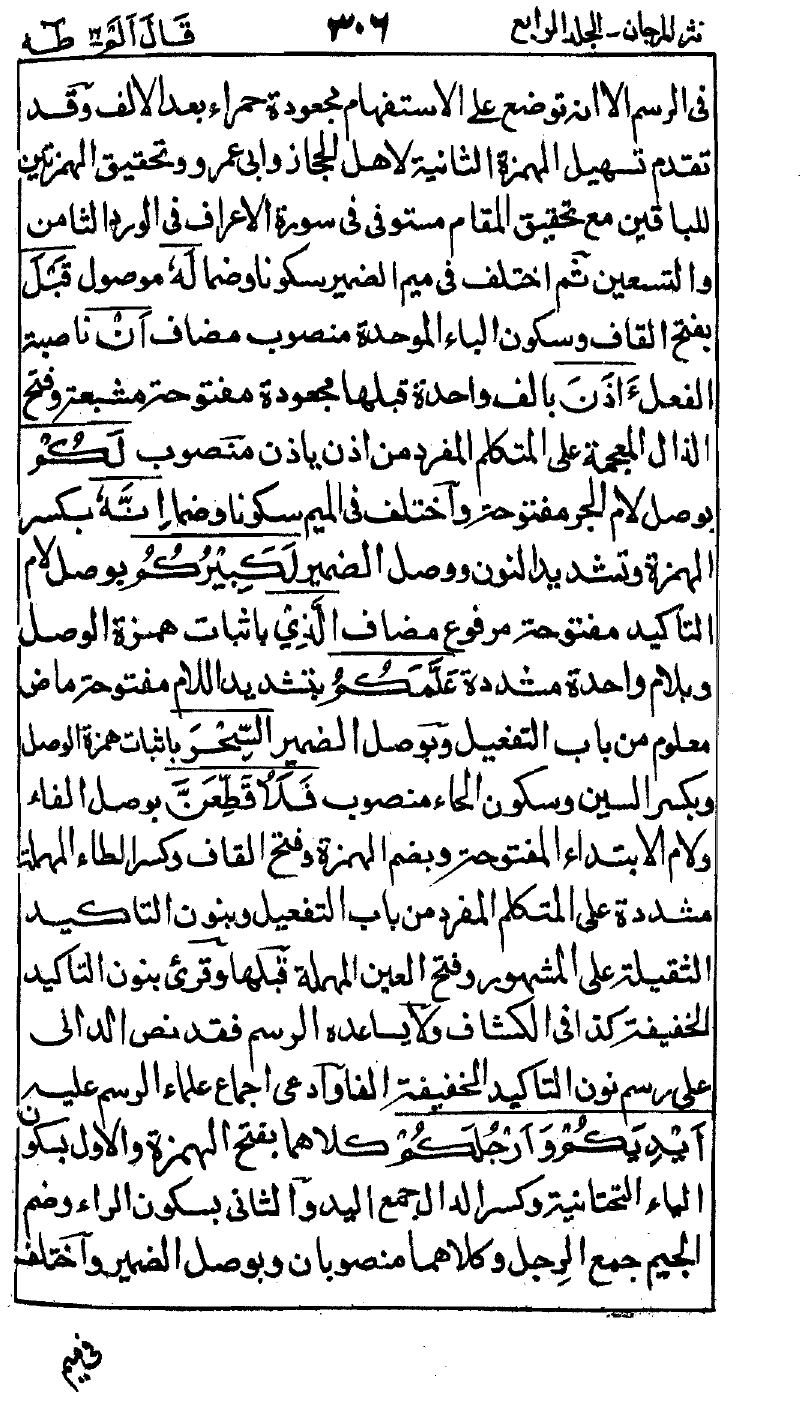 نثر المرجان - الجلد الرابع ٣٠٦ قَالَ اَلَمْ ١٦ طٰهٰ
فى الرسم الا انه توضع على الاستفهام مجعودة حمراء بعد الالف وقد
تقدم تسهيل الهمزة الثانية لاهل الحجاز وابى عمرو وتحقيق الهمزتين
للباقين مع تحقيق المقام مستوفى فى سورة الاعراف فى الورد الثامن
والتسعين ثم اختلف فى ميم الضمير سكونا وضما لَهٗ موصول قَبْلَ
بفتح القاف وسكون الباء الموحدة منصوب مضاف اَنْ ناصبة
الفعل ءَاذَنَ بالف واحدة قبلها مجعودة مفتوحة مشبعة وفتح
الذال المعجمة على المتكلم المفرد من اذن ياذن منصوب لَكُمْ
بوصل لام الجر مفتوحة واختلف فى الميم سكونا وضما اِنَّهٗ بكسر
الهمزة وتشديد النون ووصل الضمير لَكَبِيْرُكُمُ بوصل لام
التاكيد مفتوحة مرفوع مضاف الَّذِيْ باثبات همزة الوصل
وبلام واحدة مشددة عَلَّمَكُمُ بتشديد اللام مفتوحة ماض
معلوم من باب التفعيل وبوصل الضمير السِّحْرَ باثبات همزة الوصل
وبكسر السين وسكون الحاء منصوب فَلَاُقَطِّعَنَّ بوصل الفاء
ولام الابتداء المفتوحة وبضم الهمزة وفتح القاف وكسر الطاء المهملة
مشددة على المتكلم المفرد من باب التفعيل وبنون التاكيد
الثقيلة على المشهور وفتح العين المهملة قبلها وقرئ بنون التاكيد
الخفيفة كذا فى الكشاف ولا يساعده الرسم فقد نص الدانى
على رسم نون التاكيد الخفيفة الفا وادعى اجماع علماء الرسم عليه
اَيْدِيَكُمْ وَاَرْجُلَكُمْ كلاهما بفتح الهمزة والاول بسكون
الياء التحتانية وكسر الدال جمع اليد والثانى بسكون الراء وضم
الجيم جمع الرِجل وكلاهما منصوبان وبوصل الضمير واختلف
فى ميم